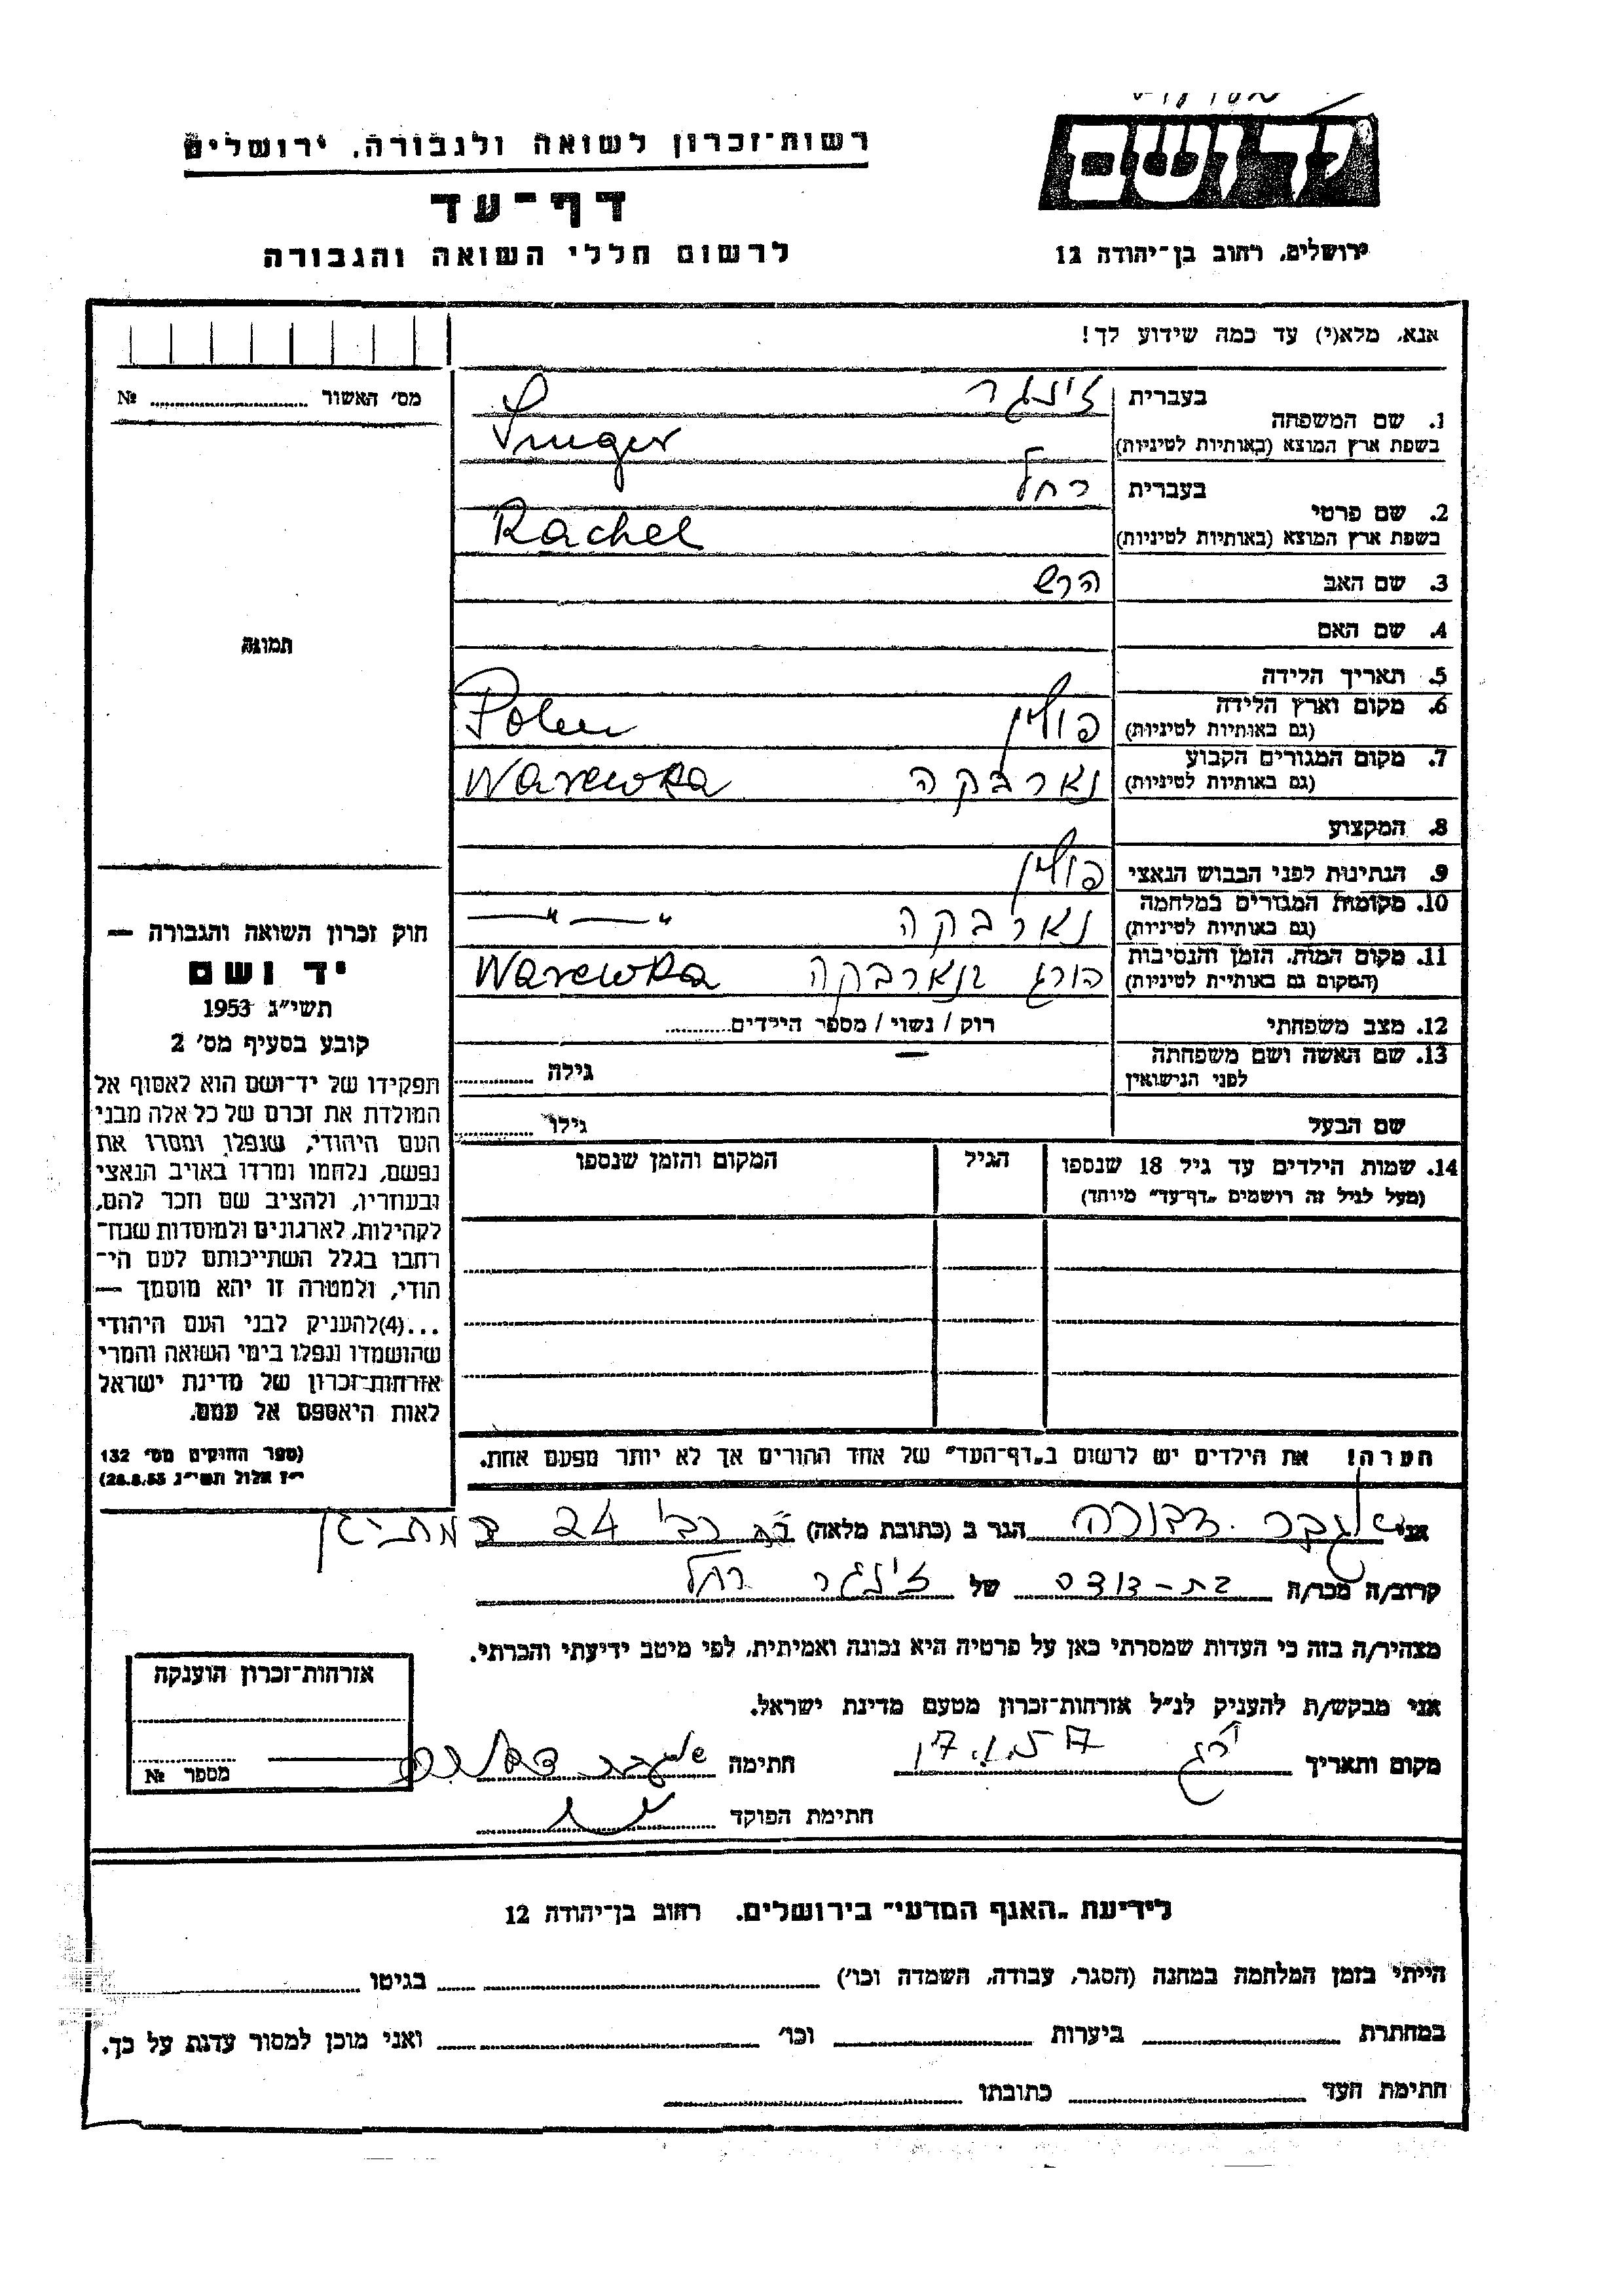 יד ושם
רשות־זכרון לשואה ולגבורה, ירושלים
דף־עד
לרשום חללי השואה והגבורה
ירושלים, רחוב בן־יהודה 12
אנא, מלא(י) עד כמה שידוע לך!
מס' האשור № ........
תמונה
1. שם המשפחה
בעברית זינגר
בשפת ארץ המוצא (באותיות לטיניות)
2. שם פרטי
בעברית רחל
בשפת ארץ המוצא (באותיות לטיניות) Rachel
3. שם האב הרש
4. שם האם
5. תאריך הלידה
6. מקום וארץ הלידה
(גם באותיות לטיניות) פולין Polen
7. מקום המגורים הקבוע
(גם באותיות לטיניות) נארבקה Narewka
8. המקצוע
9. הנתינות לפני הכבוש הנאצי פולין
10. מקומות המגורים במלחמה
(גם באותיות לטיניות) נארבקה — " —
11. מקום המות, הזמן והנסיבות
(המקום גם באותיות לטיניות) הורג בנארבקה Narewka
12. מצב משפחתי רוק / נשוי / מספר הילדים..........
13. שם האשה ושם משפחתה
לפני הנישואין — גילה ........
שם הבעל גילו ........
14. שמות הילדים עד גיל 18 שנספו
(מעל לגיל זה רושמים „דף־עד" מיוחד)
הגיל
המקום והזמן שנספו
חוק זכרון השואה והגבורה —
יד ושם
תשי"ג 1953
קובע בסעיף מס' 2
תפקידו של יד־ושם הוא לאסוף אל
המולדת את זכרם של כל אלה מבני
העם היהודי, שנפלו ומסרו את
נפשם, נלחמו ומרדו באויב הנאצי
ובעוזריו, ולהציב שם וזכר להם,
לקהילות, לארגונים ולמוסדות שנח־
רבו בגלל השתייכותם לעם הי־
הודי, ולמטרה זו יהא מוסמך —
...(4)להעניק לבני העם היהודי
שהושמדו ונפלו בימי השואה והמרי
אזרחות־זכרון של מדינת ישראל
לאות היאספם אל עמם.
(ספר החוקים מס' 132
י"ז אלול תשי"ג 28.8.53)
הערה! את הילדים יש לרשום ב„דף־העד" של אחד ההורים אך לא יותר מפעם אחת.
אני הגר ב (כתובת מלאה) 24 רמת-גן
קרוב/ה מכר/ה בת-דודה של זינגר רחל
מצהיר/ה בזה כי העדות שמסרתי כאן על פרטיה היא נכונה ואמיתית, לפי מיטב ידיעתי והכרתי.
אני מבקש/ת להעניק לנ"ל אזרחות־זכרון מטעם מדינת ישראל.
מקום ותאריך ר"ג 17.1.57 חתימה
חתימת הפוקד
אזרחות־זכרון הוענקה
מספר №
לידיעת „האגף המדעי" בירושלים. רחוב בן־יהודה 12
הייתי בזמן המלחמה במחנה (הסגר, עבודה, השמדה וכו') ........ בגיטו ........
במחתרת ........ ביערות ........ וכו' ........ ואני מוכן למסור עדות על כך.
חתימת העד ........ כתובתו ........